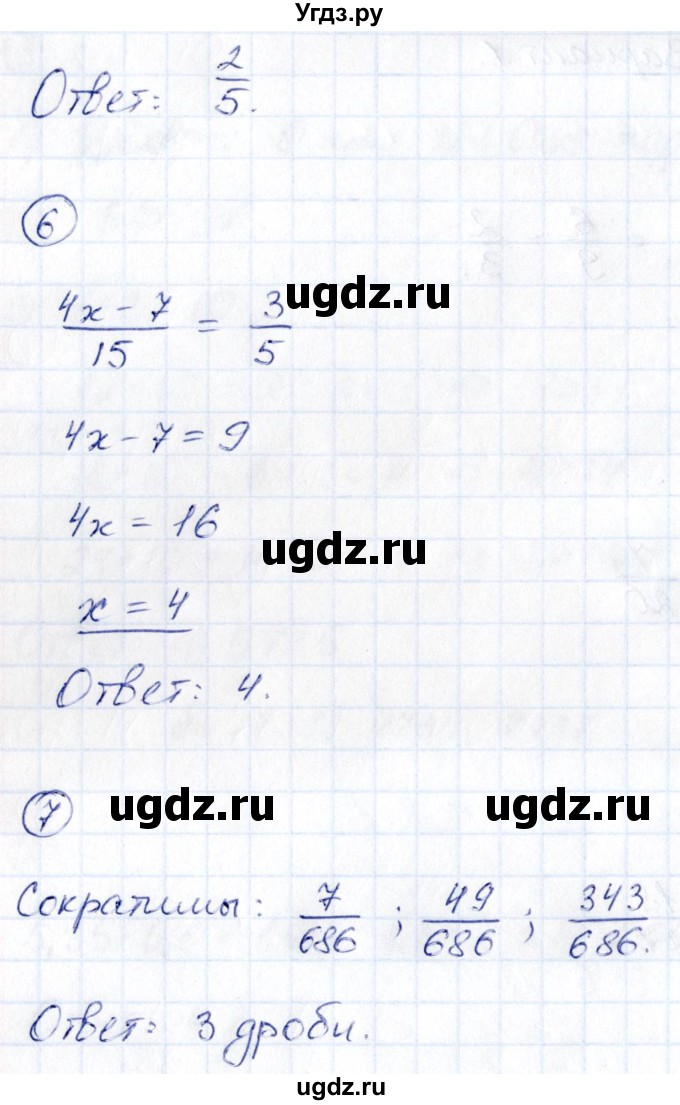 Угдз.ру
Ответ: 2/5.
6
(4x - 7)/15 = 3/5
ugdz.ru
4x - 7 = 9
4x = 16
ugdz.ru
x = 4
Ответ: 4.
7
ugdz.ru ugdz.ru
Сократимы: 7/686 ; 49/686 ; 343/686.
Ответ: 3 дроби.
ugdz.ru